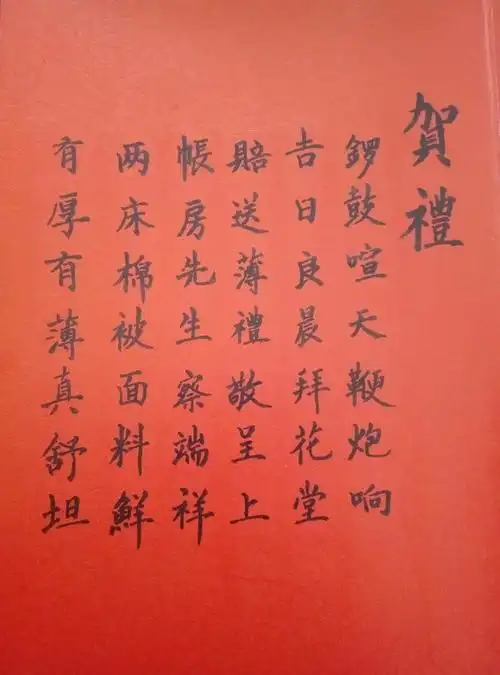 賀禮
鑼鼓喧天鞭炮响
吉日良晨拜花堂
賠送薄禮敬呈上
帳房先生察端祥
两床棉被面料鮮
有厚有薄真舒坦